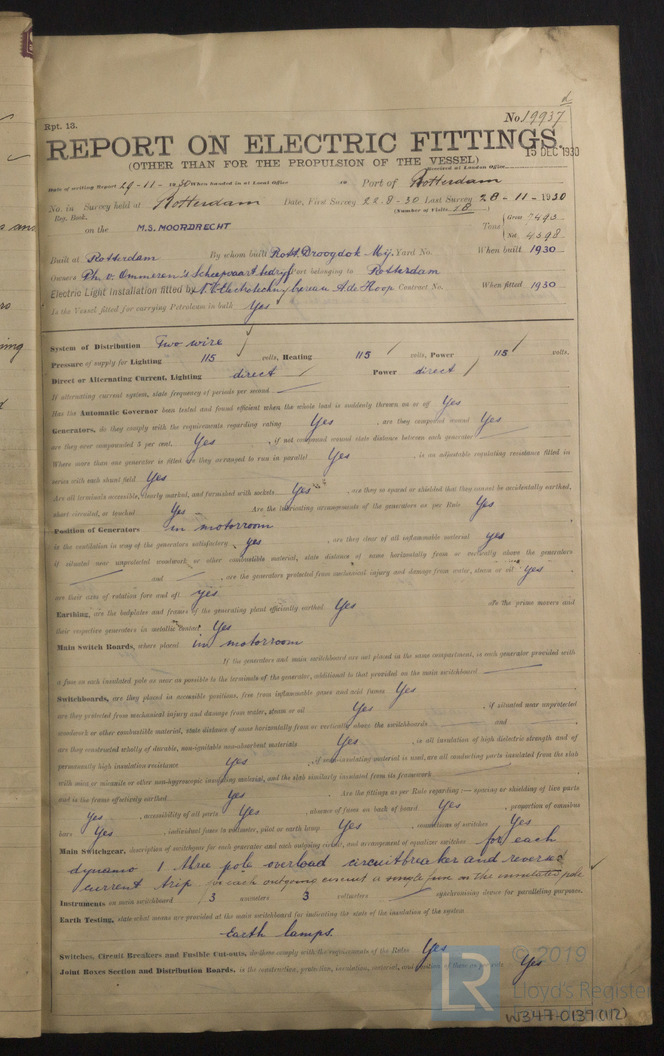 Rpt. 13.
No. 19937
REPORT ON ELECTRIC FITTINGS.
(OTHER THAN FOR THE PROPULSION OF THE VESSEL)
13 DEC 1930
Received at London Office
Date of writing Report 29-11-1930 When handed in at Local Office 10 Port of Rotterdam
No. in Survey held at Rotterdam Date, First Survey 22-8-30 Last Survey 28-11-1930
Reg. Book. (Number of Visits 18)
on the M.S. MOORDRECHT Tons Gross 7493
Net 4398
Built at Rotterdam By whom built Rott. Droogdok Mij. Yard No. When built 1930
Owners Ph. v. Ommeren's Scheepvaartbedryf Port belonging to Rotterdam
Electric Light Installation fitted by Contract No. When fitted 1930
Is the Vessel fitted for carrying Petroleum in bulk Yes
System of Distribution Two wire
Pressure of supply for Lighting 115 volts, Heating 115 volts, Power 115 volts.
Direct or Alternating Current, Lighting direct Power direct
If alternating current system, state frequency of periods per second
Has the Automatic Governor been tested and found efficient when the whole load is suddenly thrown on or off Yes
Generators, do they comply with the requirements regarding rating Yes, are they compound wound Yes
are they over compounded 5 per cent. Yes, if not compound wound state distance between each generator
Where more than one generator is fitted are they arranged to run in parallel Yes, is an adjustable regulating resistance fitted in
series with each shunt field Yes
Are all terminals accessible, clearly marked, and furnished with sockets Yes, are they so spaced or shielded that they cannot be accidentally earthed,
short circuited, or touched Yes Are the lubricating arrangements of the generators as per Rule Yes
Position of Generators in motorroom
is the ventilation in way of the generators satisfactory yes, are they clear of all inflammable material yes
if situated near unprotected woodwork or other combustible material, state distance of same horizontally from or vertically above the generators
and , are the generators protected from mechanical injury and damage from water, steam or oil yes
are their axes of rotation fore and aft yes
Earthing, are the bedplates and frames of the generating plant efficiently earthed Yes are the prime movers and
their respective generators in metallic contact Yes
Main Switch Boards, where placed in motorroom
If the generators and main switchboard are not placed in the same compartment, is each generator provided with
a fuse on each insulated pole as near as possible to the terminals of the generator, additional to that provided on the main switchboard
Switchboards, are they placed in accessible positions, free from inflammable gases and acid fumes Yes
are they protected from mechanical injury and damage from water, steam or oil Yes, if situated near unprotected
woodwork or other combustible material, state distance of same horizontally from or vertically above the switchboards and
are they constructed wholly of durable, non-ignitable non-absorbent materials Yes, is all insulation of high dielectric strength and of
permanently high insulation resistance Yes, if non-insulating material is used, are all conducting parts insulated from the slab
with mica or micanite or other non-hygroscopic insulating material, and the slab similarly insulated from its framework
and is the frame effectively earthed Yes. Are the fittings as per Rule regarding:— spacing or shielding of live parts
Yes, accessibility of all parts Yes, absence of fuses on back of board Yes, proportion of omnibus
bars Yes, individual fuses to voltmeter, pilot or earth lamp Yes, connections of switches Yes
Main Switchgear, description of switchgear for each generator and each outgoing circuit, and arrangement of equalizer switches for each
dynamo 1 three pole overload circuitbreaker and reversed
current trip for each outgoing circuit a single fuse on the insulated pole
Instruments on main switchboard 3 ammeters 3 voltmeters synchronising device for paralleling purposes.
Earth Testing, state what means are provided at the main switchboard for indicating the state of the insulation of the system
Earth lamps.
Switches, Circuit Breakers and Fusible Cut-outs, do these comply with the requirements of the Rules Yes
Joint Boxes Section and Distribution Boards, is the construction, protection, insulation, material, and position of these as per rule Yes
© 2019
LR
Lloyd's Register
W347-0139(1/2)